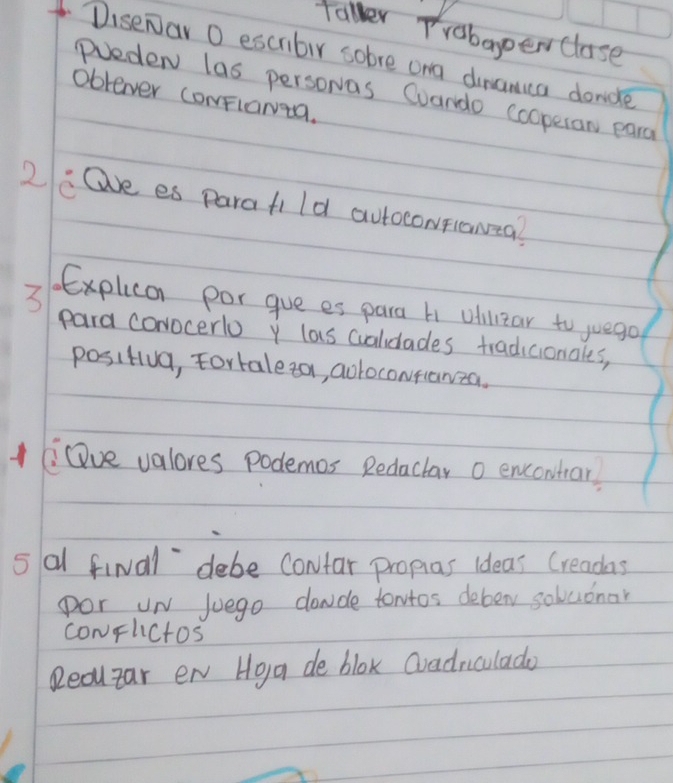 Taller Trabajo en clase
1. Diseñar o escribir sobre una dinamica donde
pueden las personas cuando cooperan para
obtener confianza.
2 ¿Que es para ti la autoconfianza?
3. Explica por que es para ti utilizar tu juego
para conocerlo y las cualidades tradicionales,
positiva, Fortaleza, autoconfianza.
¿Que valores podemos Redactar o encontrar?
5 al final debe contar propias ideas creadas
por un juego donde tontos deben solucionar
conflictos
Realizar en Hoja de blok cuadriculado